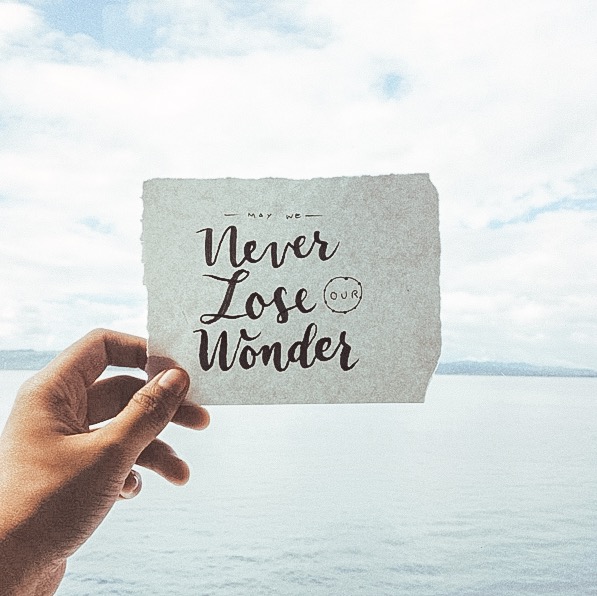 — MAY WE —
Never
Lose OUR
Wonder